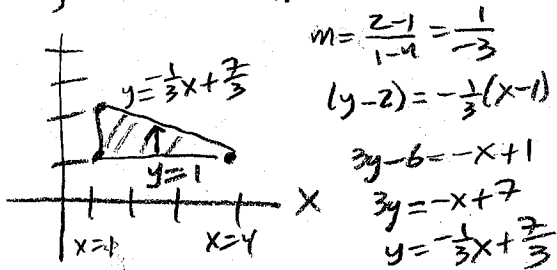 m = 2-1/1-4 = 1/-3
y = -1/3x + 7/3
(y-2) = -1/3(x-1)
y=1
3y-6=-x+1
X
3y=-x+7
x=1
x=4
y=-1/3x+7/3